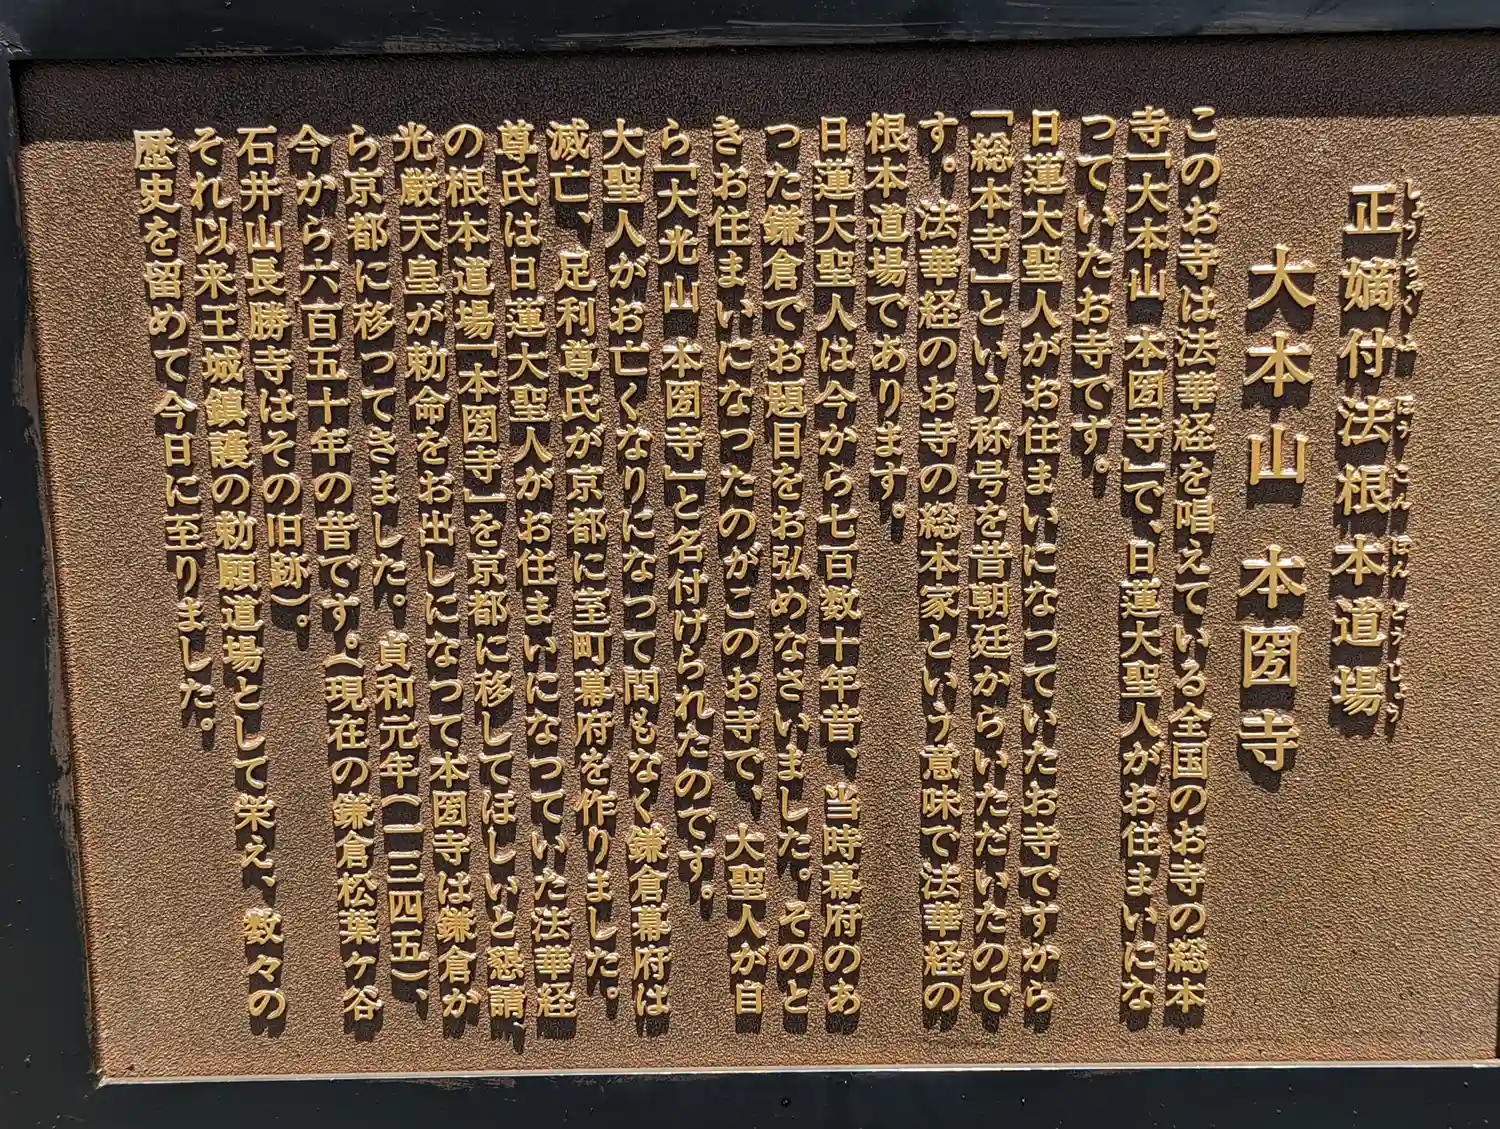 正嫡付法根本道場
しょうちゃくふほうこんぽんどうじょう
大本山 本圀寺
このお寺は法華経を唱えている全国のお寺の総本
寺「大本山 本圀寺」で、日蓮大聖人がお住まいにな
つていたお寺です。
日蓮大聖人がお住まいになつていたお寺ですから
「総本寺」という称号を昔朝廷からいただいたので
す。法華経のお寺の総本家という意味で法華経の
根本道場であります。
日蓮大聖人は今から七百数十年昔、当時幕府のあ
つた鎌倉でお題目をお弘めなさいました。そのと
きお住まいになつたのがこのお寺で、大聖人が自
ら「大光山 本圀寺」と名付けられたのです。
大聖人がお亡くなりになつて間もなく鎌倉幕府は
滅亡、足利尊氏が京都に室町幕府を作りました。
尊氏は日蓮大聖人がお住まいになつていた法華経
の根本道場「本圀寺」を京都に移してほしいと懇請、
光厳天皇が勅命をお出しになつて本圀寺は鎌倉か
ら京都に移つてきました。貞和元年(一三四五)、
今から六百五十年の昔です。(現在の鎌倉松葉ヶ谷
石井山長勝寺はその旧跡)。
それ以来王城鎮護の勅願道場として栄え、数々の
歴史を留めて今日に至りました。